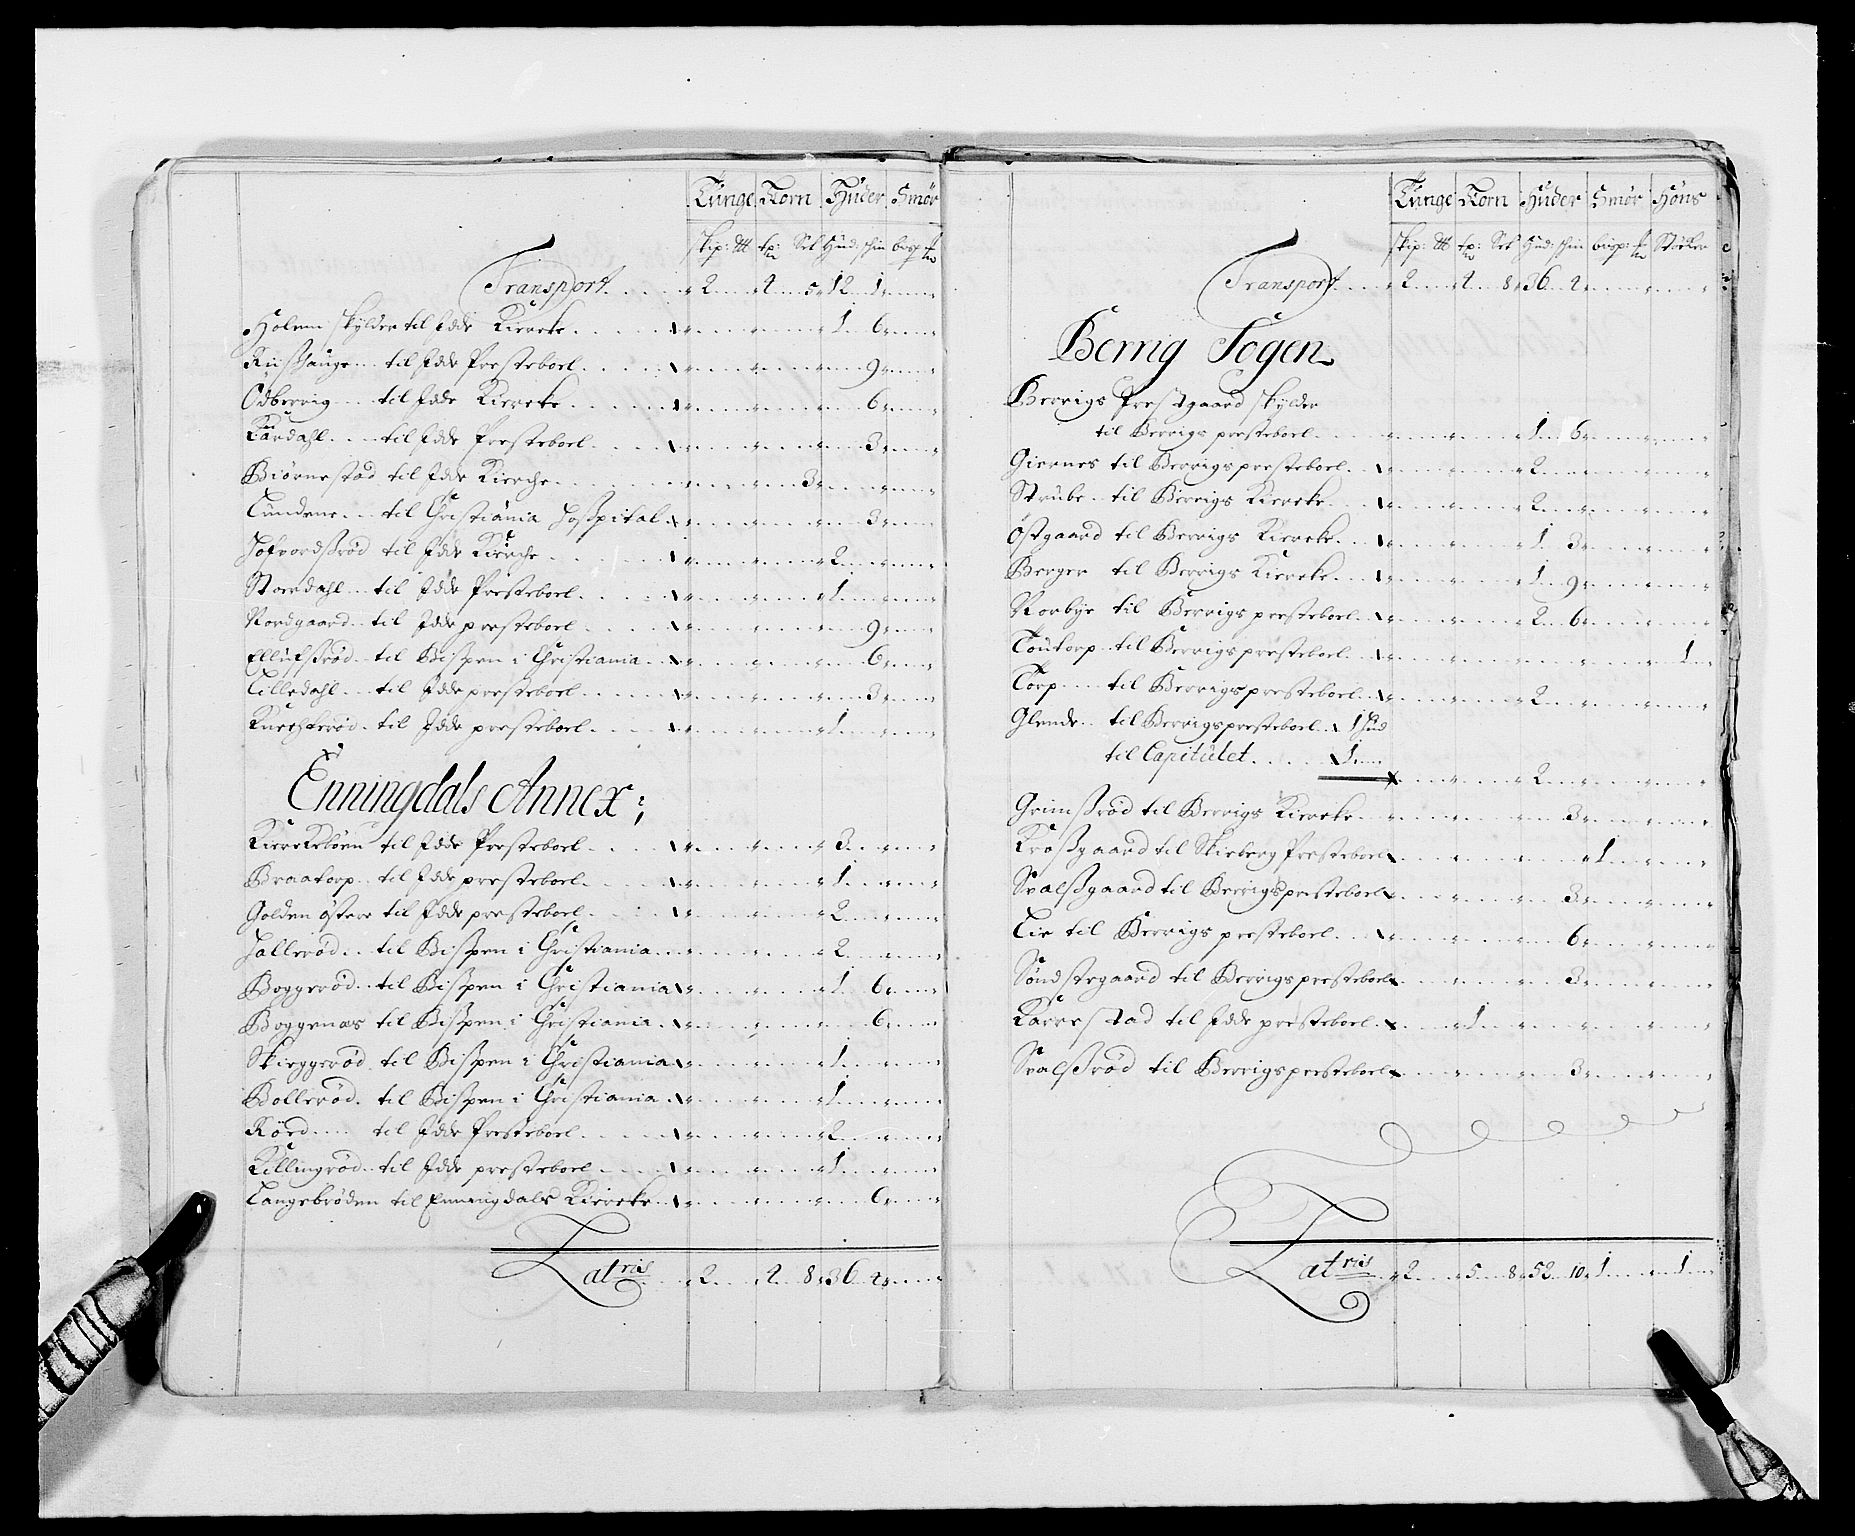 Tunge Korn Huder Smør
skip: ℔ tp: Sek Hud: skin bisp:
Transport . . . 2 . . 4 5 12 1
Holem skylder til Idde Kiercke . . . 1 6
Riisshauge til Idde Presteboel . . . 9
Odberrig til Idde Kiercke . . . 6
til Idde Presteboel . . . 3
Biørnestad til Idde Kierche . . . 3
Lundene til Christiania Hosspital . . . 3
til Idde Kierche . . . 2
Stoerdahl til Idde Presteboel . . . 1
Nordgaard til Idde presteboel . . . 9
Ellufssrød til Bispen i Christiania . . . 6
Lilledahl til Idde presteboel . . . 3
til Idde presteboel . . . 1
Enningdals Annex;
til Idde Presteboel . . . 3
Braatorp til Idde presteboel . . . 1
Golden østere til Idde presteboel . . . 2
Hallerød til Bispen i Christiania . . . 2
Boggerød til Bispen i Christiania . . . 1 6
Boggenæs til Bispen i Christiania . . . 6
Skieggerød til Bispen i Christiania . . . 1
Bollerød til Bispen i Christiania . . . 1
Kørd til Idde Presteboel . . . 2
Killingrød til Idde presteboel . . . 1
Langebrøden til Enningdals Kiercke . . . 6
Latris 2 . . 4 8 36 4
Tunge Korn Huder Smør Høns
skip: ℔ tp: Sek Hud: skin bisp: Støcker
Transport . . . 2 . . 4 8 36 4
Berrig Sogen
Berrigs Prestgaard skylder
til Berrigs presteboel . . . 1 6
Giernes til Berrigs presteboel . . . 2
Strube til Berrigs Kiercke . . . 2
Østgaard til Berrigs Kiercke . . . 1 3
Berger til Berrigs Kiercke . . . 1 9
Norbye til Berrigs presteboel . . . 2 6
til Berrigs presteboel . . . 1
Torp til Berrigs presteboel . . . 2
Glende til Berrigs presteboel 1 Hud
til Capitulet . . . 1
2
Grimssrød til Berrigs Kiercke . . . 3
Krossgaard til Skieberg Presteboel . . . 1
Svalssgaard til Berrigs presteboel . . . 3
Lie til Berrigs presteboel . . . 6
Søndstegaard til Berrigs presteboel . . . 3
Karrestad til Idde presteboel . . . 1
Svalssrød til Berrigs presteboel . . . 3
Latris 2 . . 5 8 52 10 1 . . 1